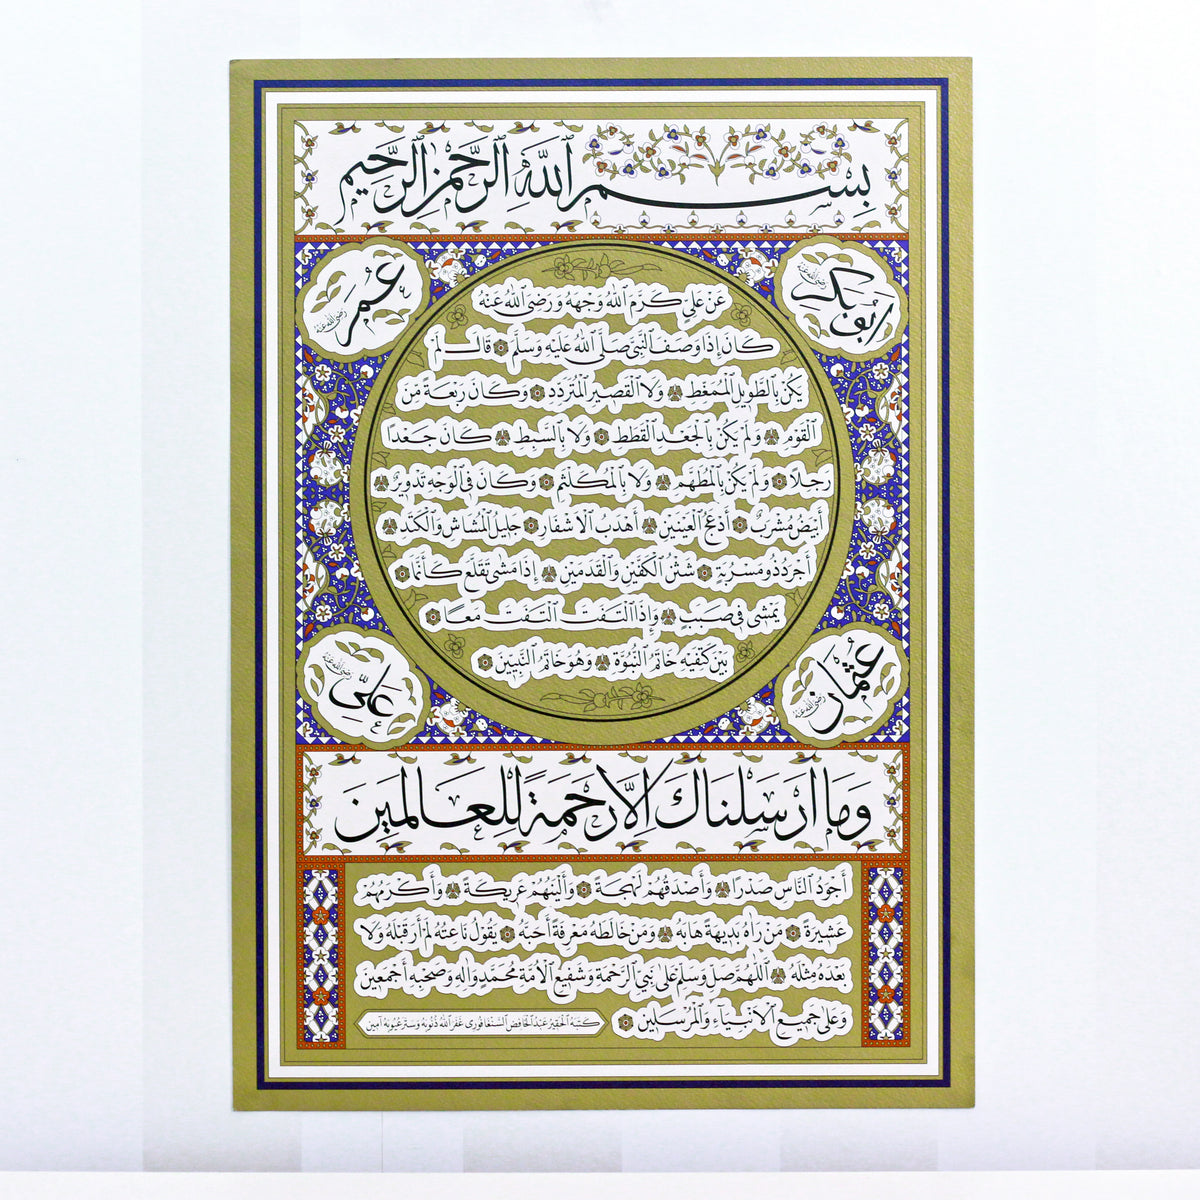 بِسْمِ ٱللَّهِ ٱلرَّحْمٰنِ ٱلرَّحِيمِ
ابُو بَكَر رضي الله عنه
عُمَر رضي الله عنه
عَنْ عَلِيٍّ كَرَّمَ اللّٰهُ وَجْهَهُ وَرَضِيَ اللّٰهُ عَنْهُ
كَانَ إِذَا وَصَفَ النَّبِيَّ صَلَّى اللّٰهُ عَلَيْهِ وَسَلَّمَ قَالَ لَمْ
يَكُنْ بِالطَّوِيلِ الْمُمَغَّطِ وَلَا الْقَصِيرِ الْمُتَرَدِّدِ وَكَانَ رَبْعَةً مِنَ
الْقَوْمِ وَلَمْ يَكُنْ بِالْجَعْدِ الْقَطَطِ وَلَا بِالسَّبِطِ كَانَ جَعْدًا
رَجِلًا وَلَمْ يَكُنْ بِالْمُطَهَّمِ وَلَا بِالْمُكَلْثَمِ وَكَانَ فِي الْوَجْهِ تَدْوِيرٌ
أَبْيَضُ مُشْرَبٌ أَدْعَجُ الْعَيْنَيْنِ أَهْدَبُ الْأَشْفَارِ جَلِيلُ الْمُشَاشِ وَالْكَتَدِ
أَجْرَدُ ذُو مَسْرُبَةٍ شَثْنُ الْكَفَّيْنِ وَالْقَدَمَيْنِ إِذَا مَشَى تَقَلَّعَ كَأَنَّمَا
يَمْشِي فِي صَبَبٍ وَإِذَا الْتَفَتَ الْتَفَتَ مَعًا
بَيْنَ كَتِفَيْهِ خَاتَمُ النُّبُوَّةِ وَهُوَ خَاتَمُ النَّبِيِّينَ
عُثْمَان رضي الله عنه
عَلِيّ رضي الله عنه
وَمَا اَرْسَلْنَاكَ اِلَّا رَحْمَةً لِلْعَالَمِينَ
أَجْوَدُ النَّاسِ صَدْرًا وَأَصْدَقُهُمْ لَهْجَةً وَأَلْيَنُهُمْ عَرِيكَةً وَأَكْرَمُهُمْ
عَشِيرَةً مَنْ رَآهُ بَدِيهَةً هَابَهُ وَمَنْ خَالَطَهُ مَعْرِفَةً أَحَبَّهُ يَقُولُ نَاعِتُهُ لَمْ أَرَ قَبْلَهُ وَلَا
بَعْدَهُ مِثْلَهُ اَللّٰهُمَّ صَلِّ وَسَلِّمْ عَلَى نَبِيِّ الرَّحْمَةِ وَشَفِيعِ الْأُمَّةِ مُحَمَّدٍ وَاٰلِهِ وَصَحْبِهِ أَجْمَعِينَ
وَعَلَى جَمِيعِ الْأَنْبِيَاءِ وَالْمُرْسَلِينَ
كتبه الحقير عبد الحافض السنغافوري غفر الله ذنوبه وستر عيوبه آمين